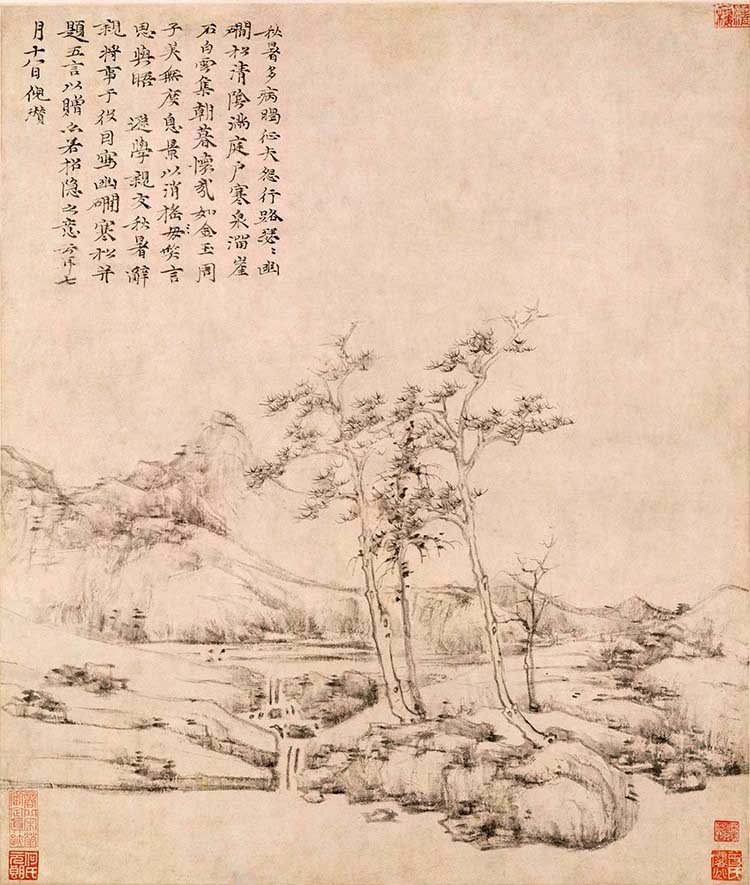 秋暑多病暍征夫怨行路瑟〻幽
磵松清陰滿庭户寒泉溜崖
石白雲集朝暮懷哉如金玉周
子美無度息景以消搖笑言
思與晤 遜學親友秋暑辭
親將事于役因寫幽磵寒松并
題五言以贈亦若招隱之意云耳七
月十八日倪瓚